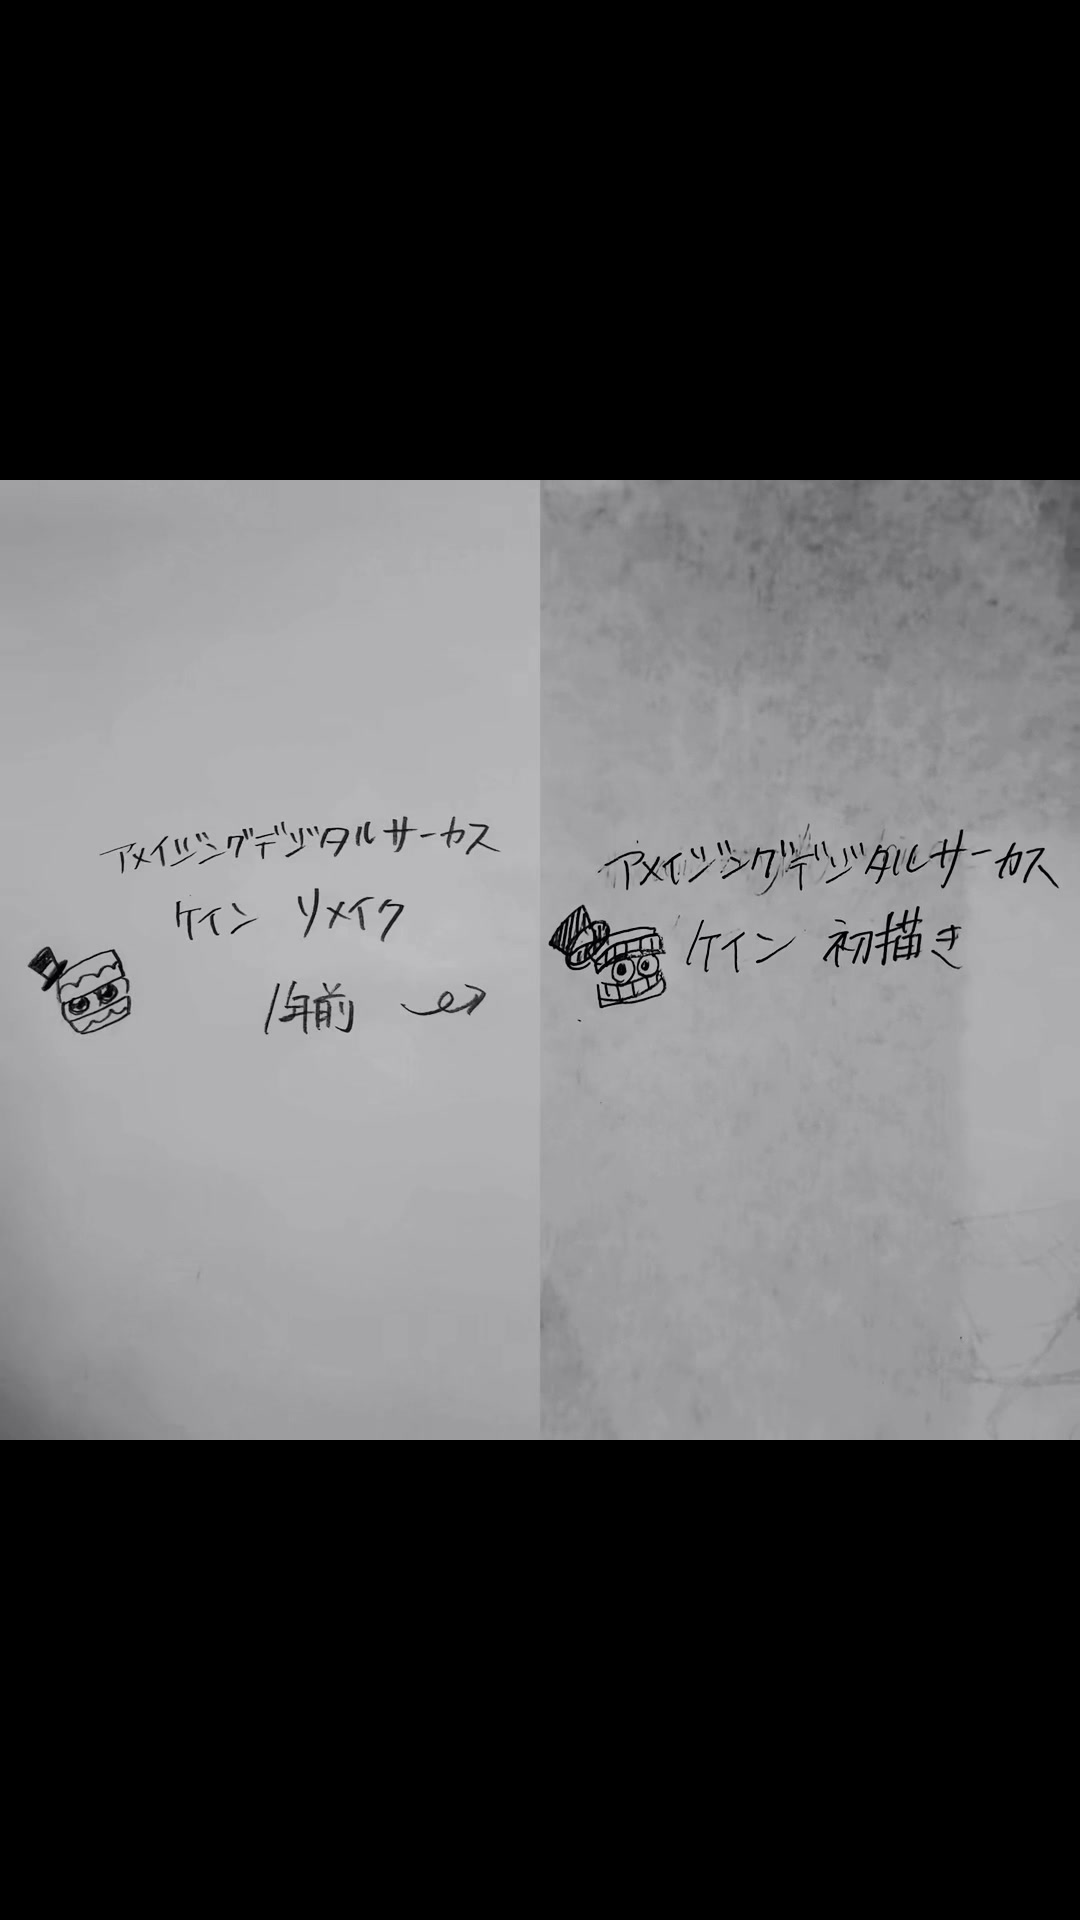 アメイジングデジタルサーカス
ケイン リメイク
1年前
アメイジングデジタルサーカス
ケイン 初描き